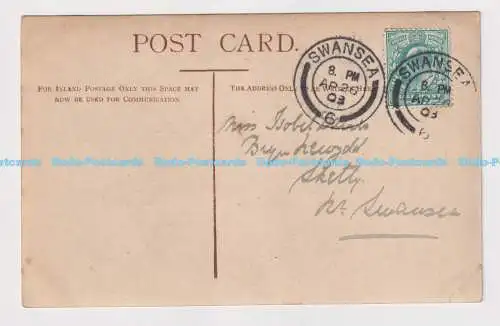 POST CARD.
FOR INLAND POSTAGE ONLY THIS SPACE MAY
NOW BE USED FOR COMMUNICATION.
THE ADDRESS ONLY
SWANSEA
8. PM
AP 26
03
6
SWANSEA
8. PM
AP
03
Miss Isobel
Sketty
Nr. Swansea
Bado-Postcards Bado-Postcards Bado-Postcards Bado-Postcards